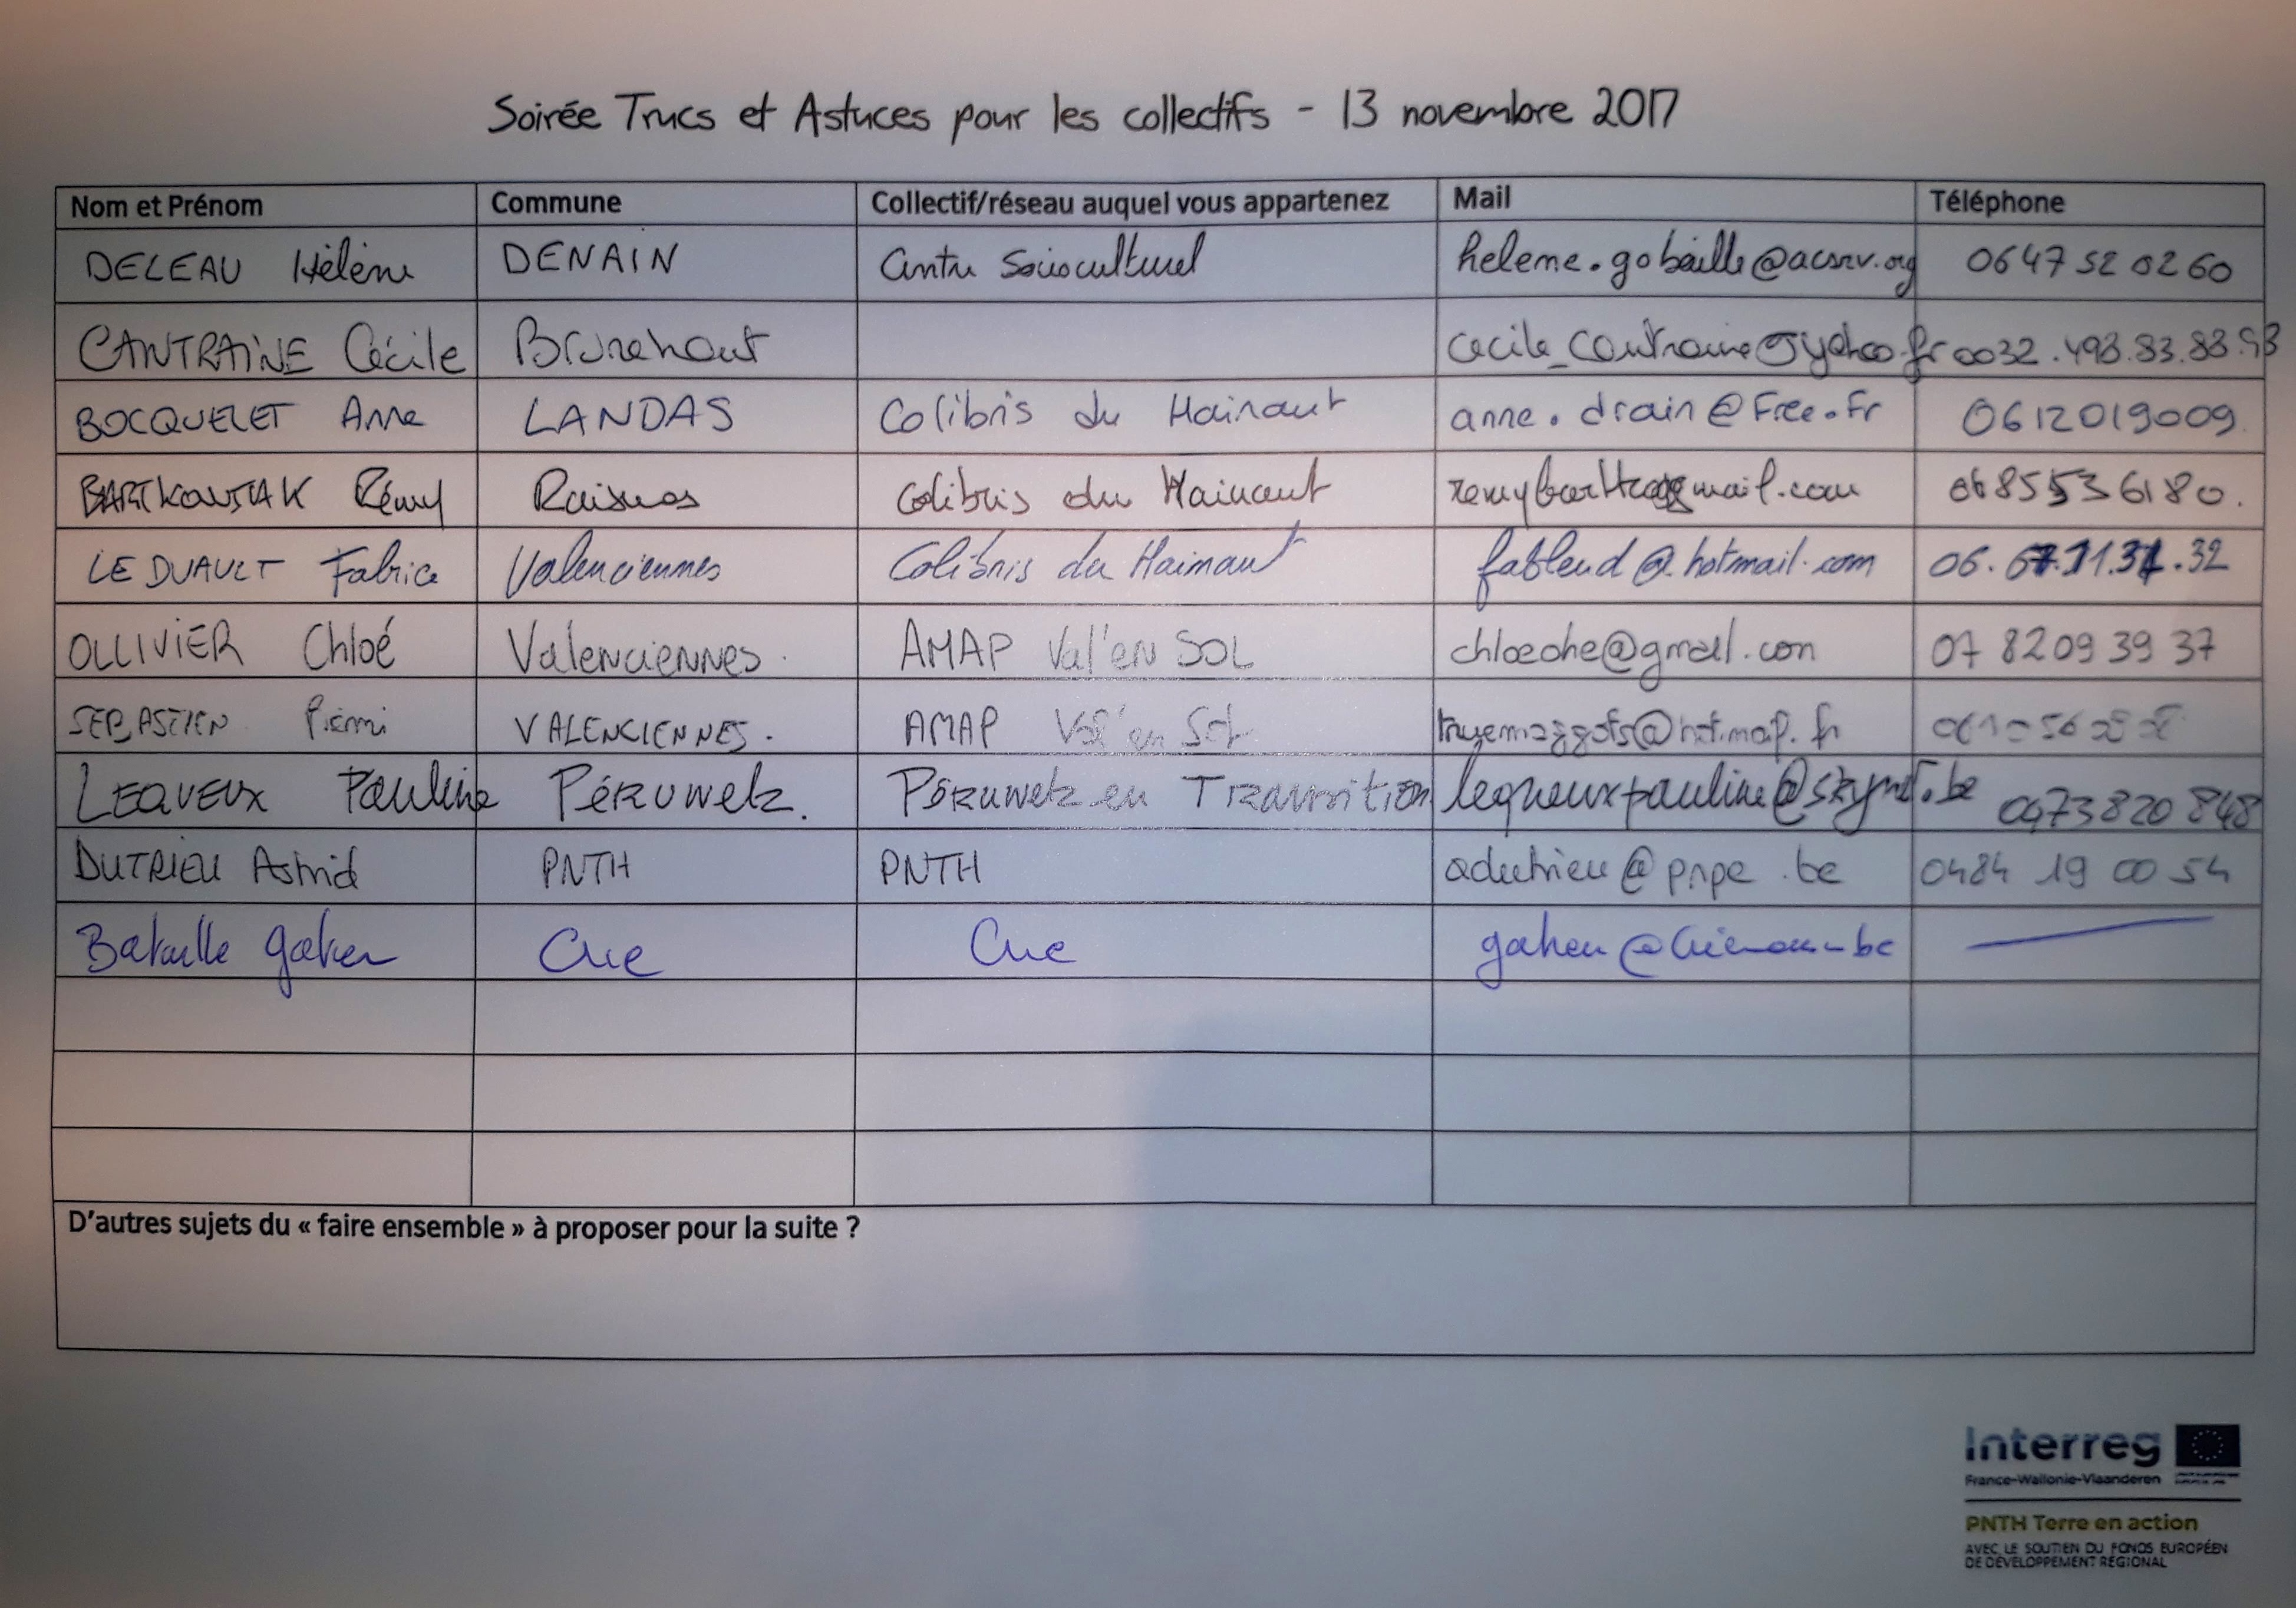 Soirée Trucs et Astuces pour les collectifs - 13 novembre 2017
Nom et Prénom Commune Collectif/réseau auquel vous appartenez Mail Téléphone
DELEAU Hélène DENAIN Centre Socioculturel helene.gobaille@acsrv.org 06 47 52 02 60
CANTRAINE Cécile Brunehaut cecile_cantraine@yahoo.fr 0032.493.83.83.93
BOCQUELET Anne LANDAS Colibris du Hainaut anne.drain@Free.Fr 0612019009
BARTKOWIAK Rémy Raismes Colibris du Hainaut 0685536180.
LE DUAULT Fabrice Valenciennes Colibris du Hainaut fableud@hotmail.com
OLLIVIER Chloé Valenciennes. AMAP Val'en SOL chloeohe@gmail.com 07 82 09 39 37
SEBASTIEN Rémi VALENCIENNES. AMAP Val'en SOL
LEQUEUX Pauline Péruwelz. Péruwelz en Transition lequeuxpauline@skynet.be 0473820848
DUTRIEU Astrid PNTH PNTH adutrieu@pnpe.be 0484 19 00 54
Bataille Crie Crie
D'autres sujets du « faire ensemble » à proposer pour la suite ?
Interreg
France-Wallonie-Vlaanderen
PNTH Terre en action
AVEC LE SOUTIEN DU FONDS EUROPÉEN
DE DÉVELOPPEMENT RÉGIONAL